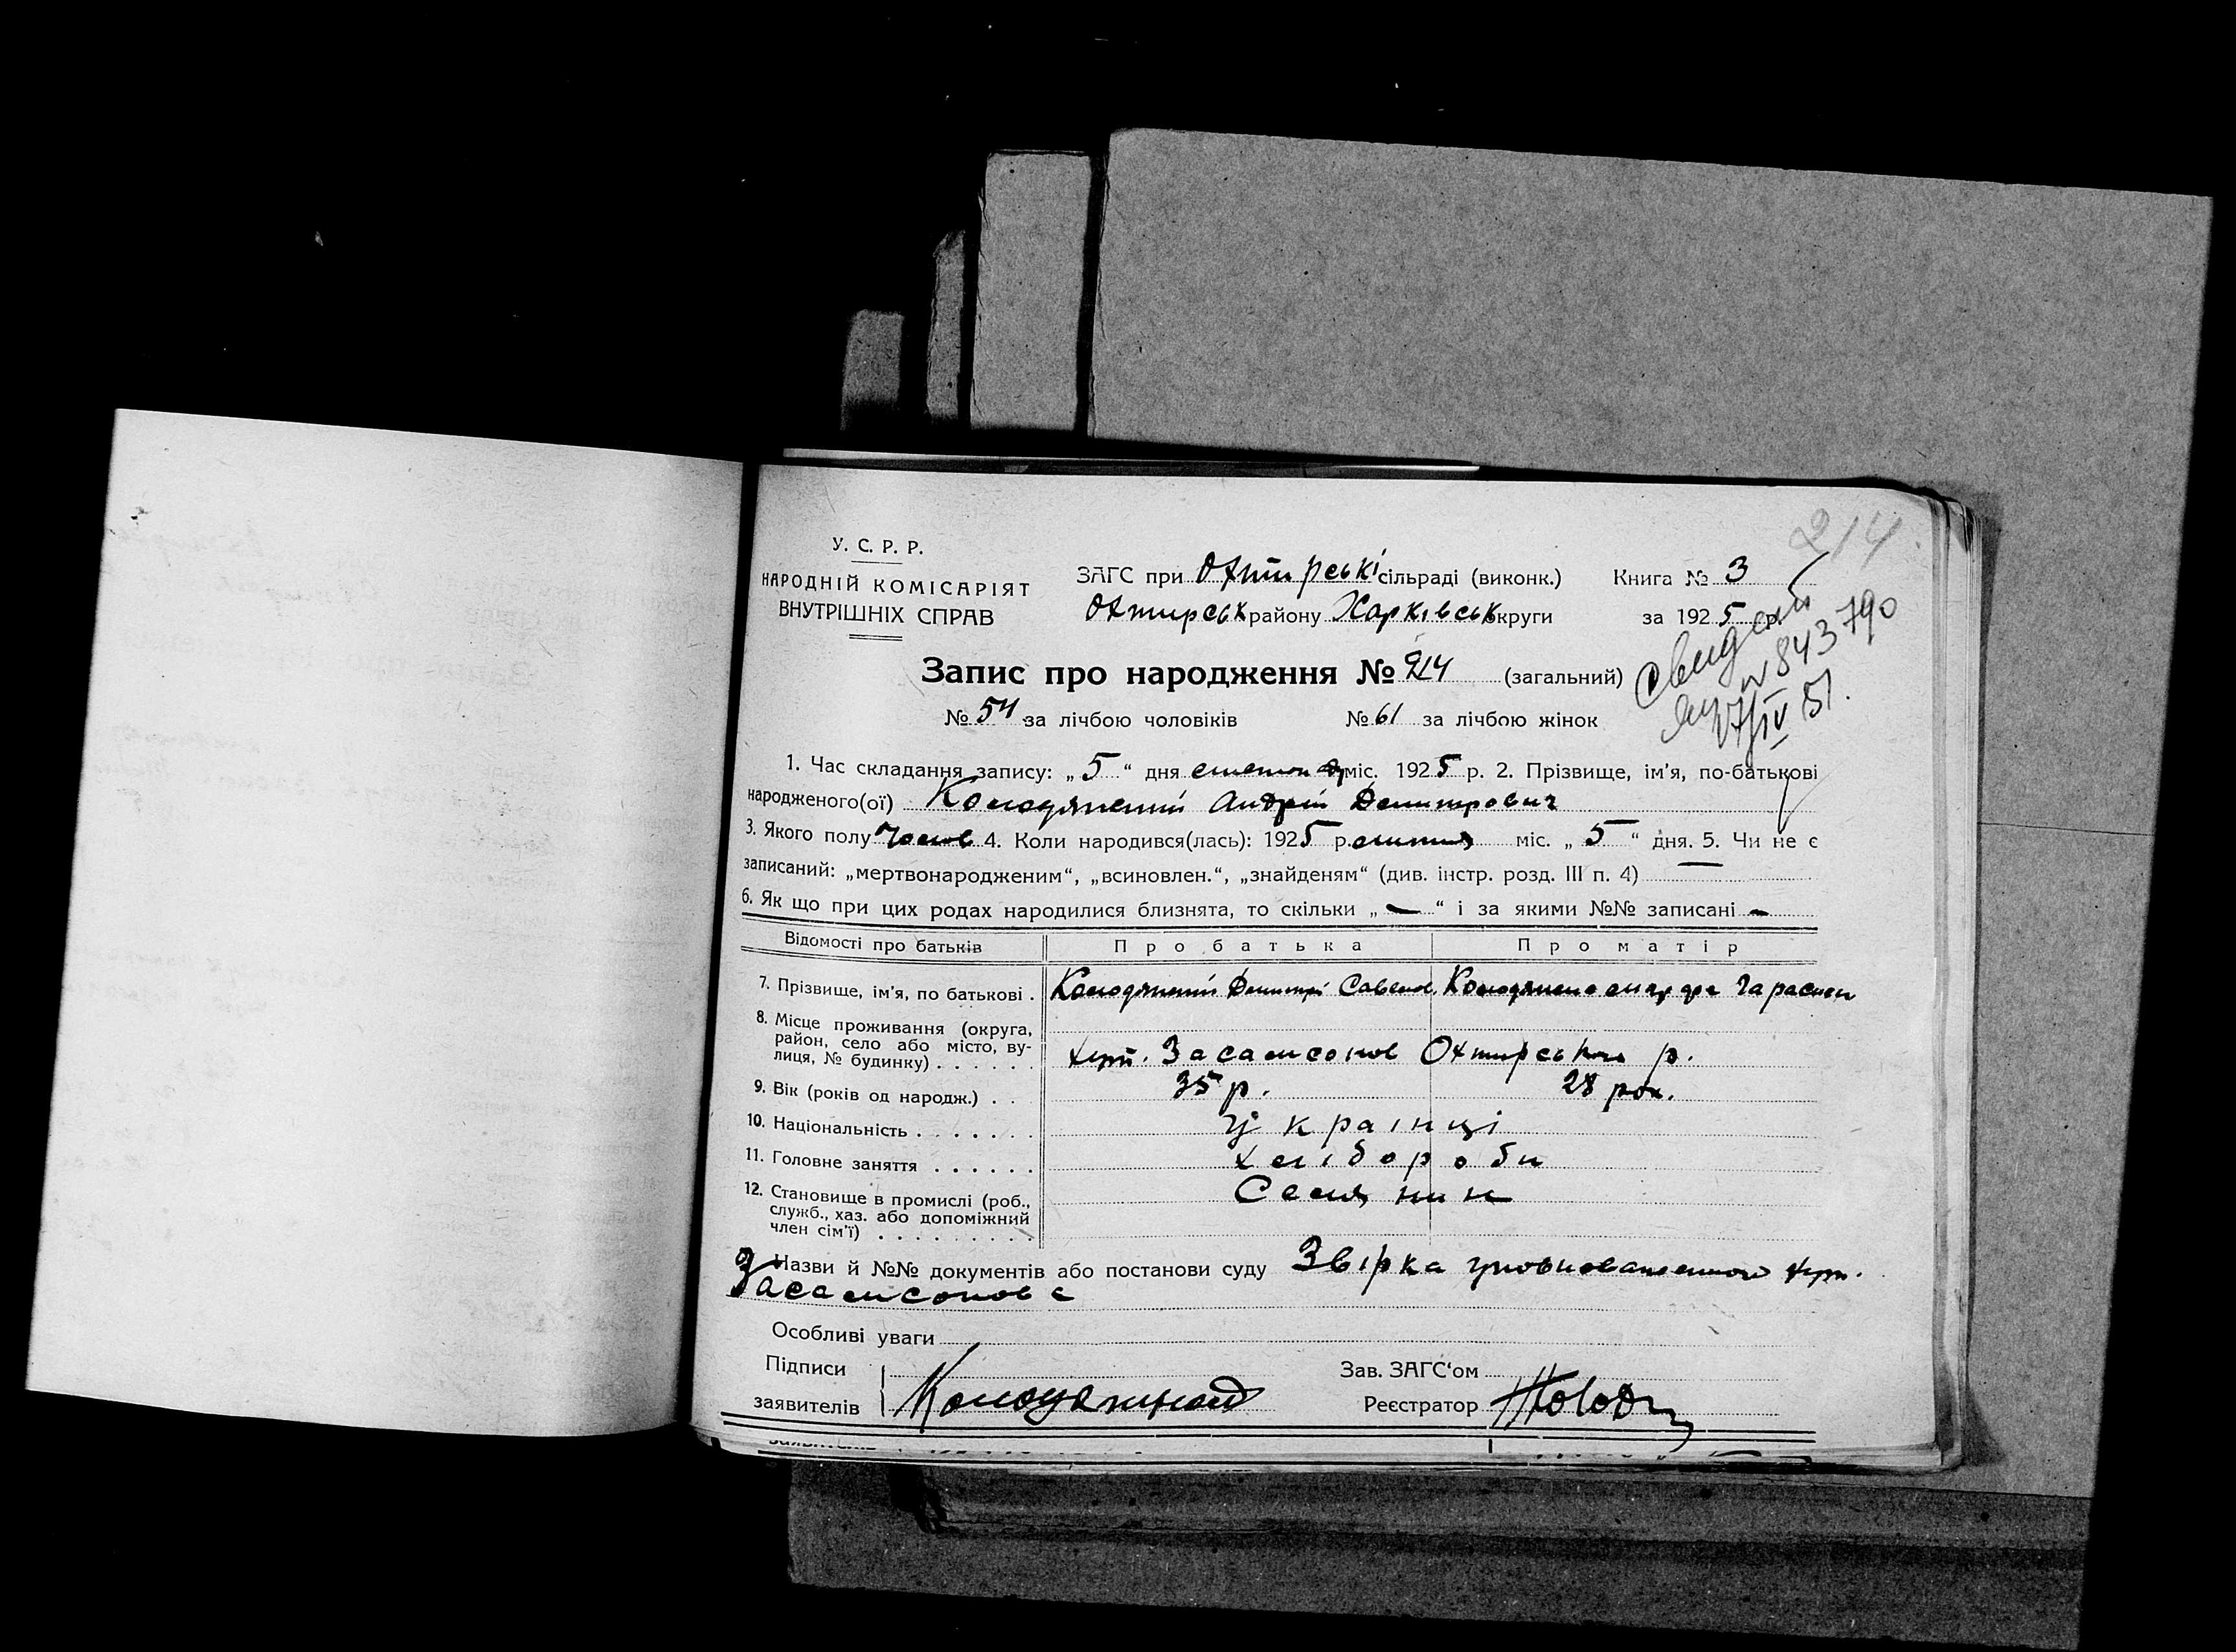 214
У. С. Р. Р.
НАРОДНІЙ КОМІСАРІЯТ
ВНУТРІШНІХ СПРАВ
ЗАГС при Охтирські сільраді (виконк.)
Охтирськ району Харківськ округи
Книга № 3
за 1925 р.
№ 843790
IV 51.
Запис про народження № 214 (загальний)
№ 54 за лічбою чоловіків № 61 за лічбою жінок
1. Час складання запису: „5“ дня міс. 1925 р. 2. Прізвище, ім’я, по-батькові
народженого(ої) Колодяжний Андрій Демитрович
3. Якого полу Чолов 4. Коли народився(лась): 1925 р. міс. „5“ дня. 5. Чи не є
записаний: „мертвонародженим“, „всиновлен.“, „знайденям“ (див. інстр. розд. III п. 4) —
6. Як що при цих родах народилися близнята, то скільки „—“ і за якими №№ записані —
Відомості про батьків Про батька Про матір
7. Прізвище, ім’я, по батькові . Колодяжний Демитрі Савелов.
8. Місце проживання (округа,
район, село або місто, ву-
лиця, № будинку) . . . . . . хут. Засамсонов Охтирського р.
9. Вік (років од народж.) . . 35 р. 28 рок.
10. Національність . . . . . . . Українці
11. Головне заняття . . . . . . Хлібороби
12. Становище в промислі (роб.,
служб., хаз. або допоміжний
член сім’ї) . . . . . . . . . Селянин
Назви й №№ документів або постанови суду Звірка уповноваженного хут.
Засамсонова
Особливі уваги
Підписи
заявителів
Зав. ЗАГС‘ом
Реєстратор